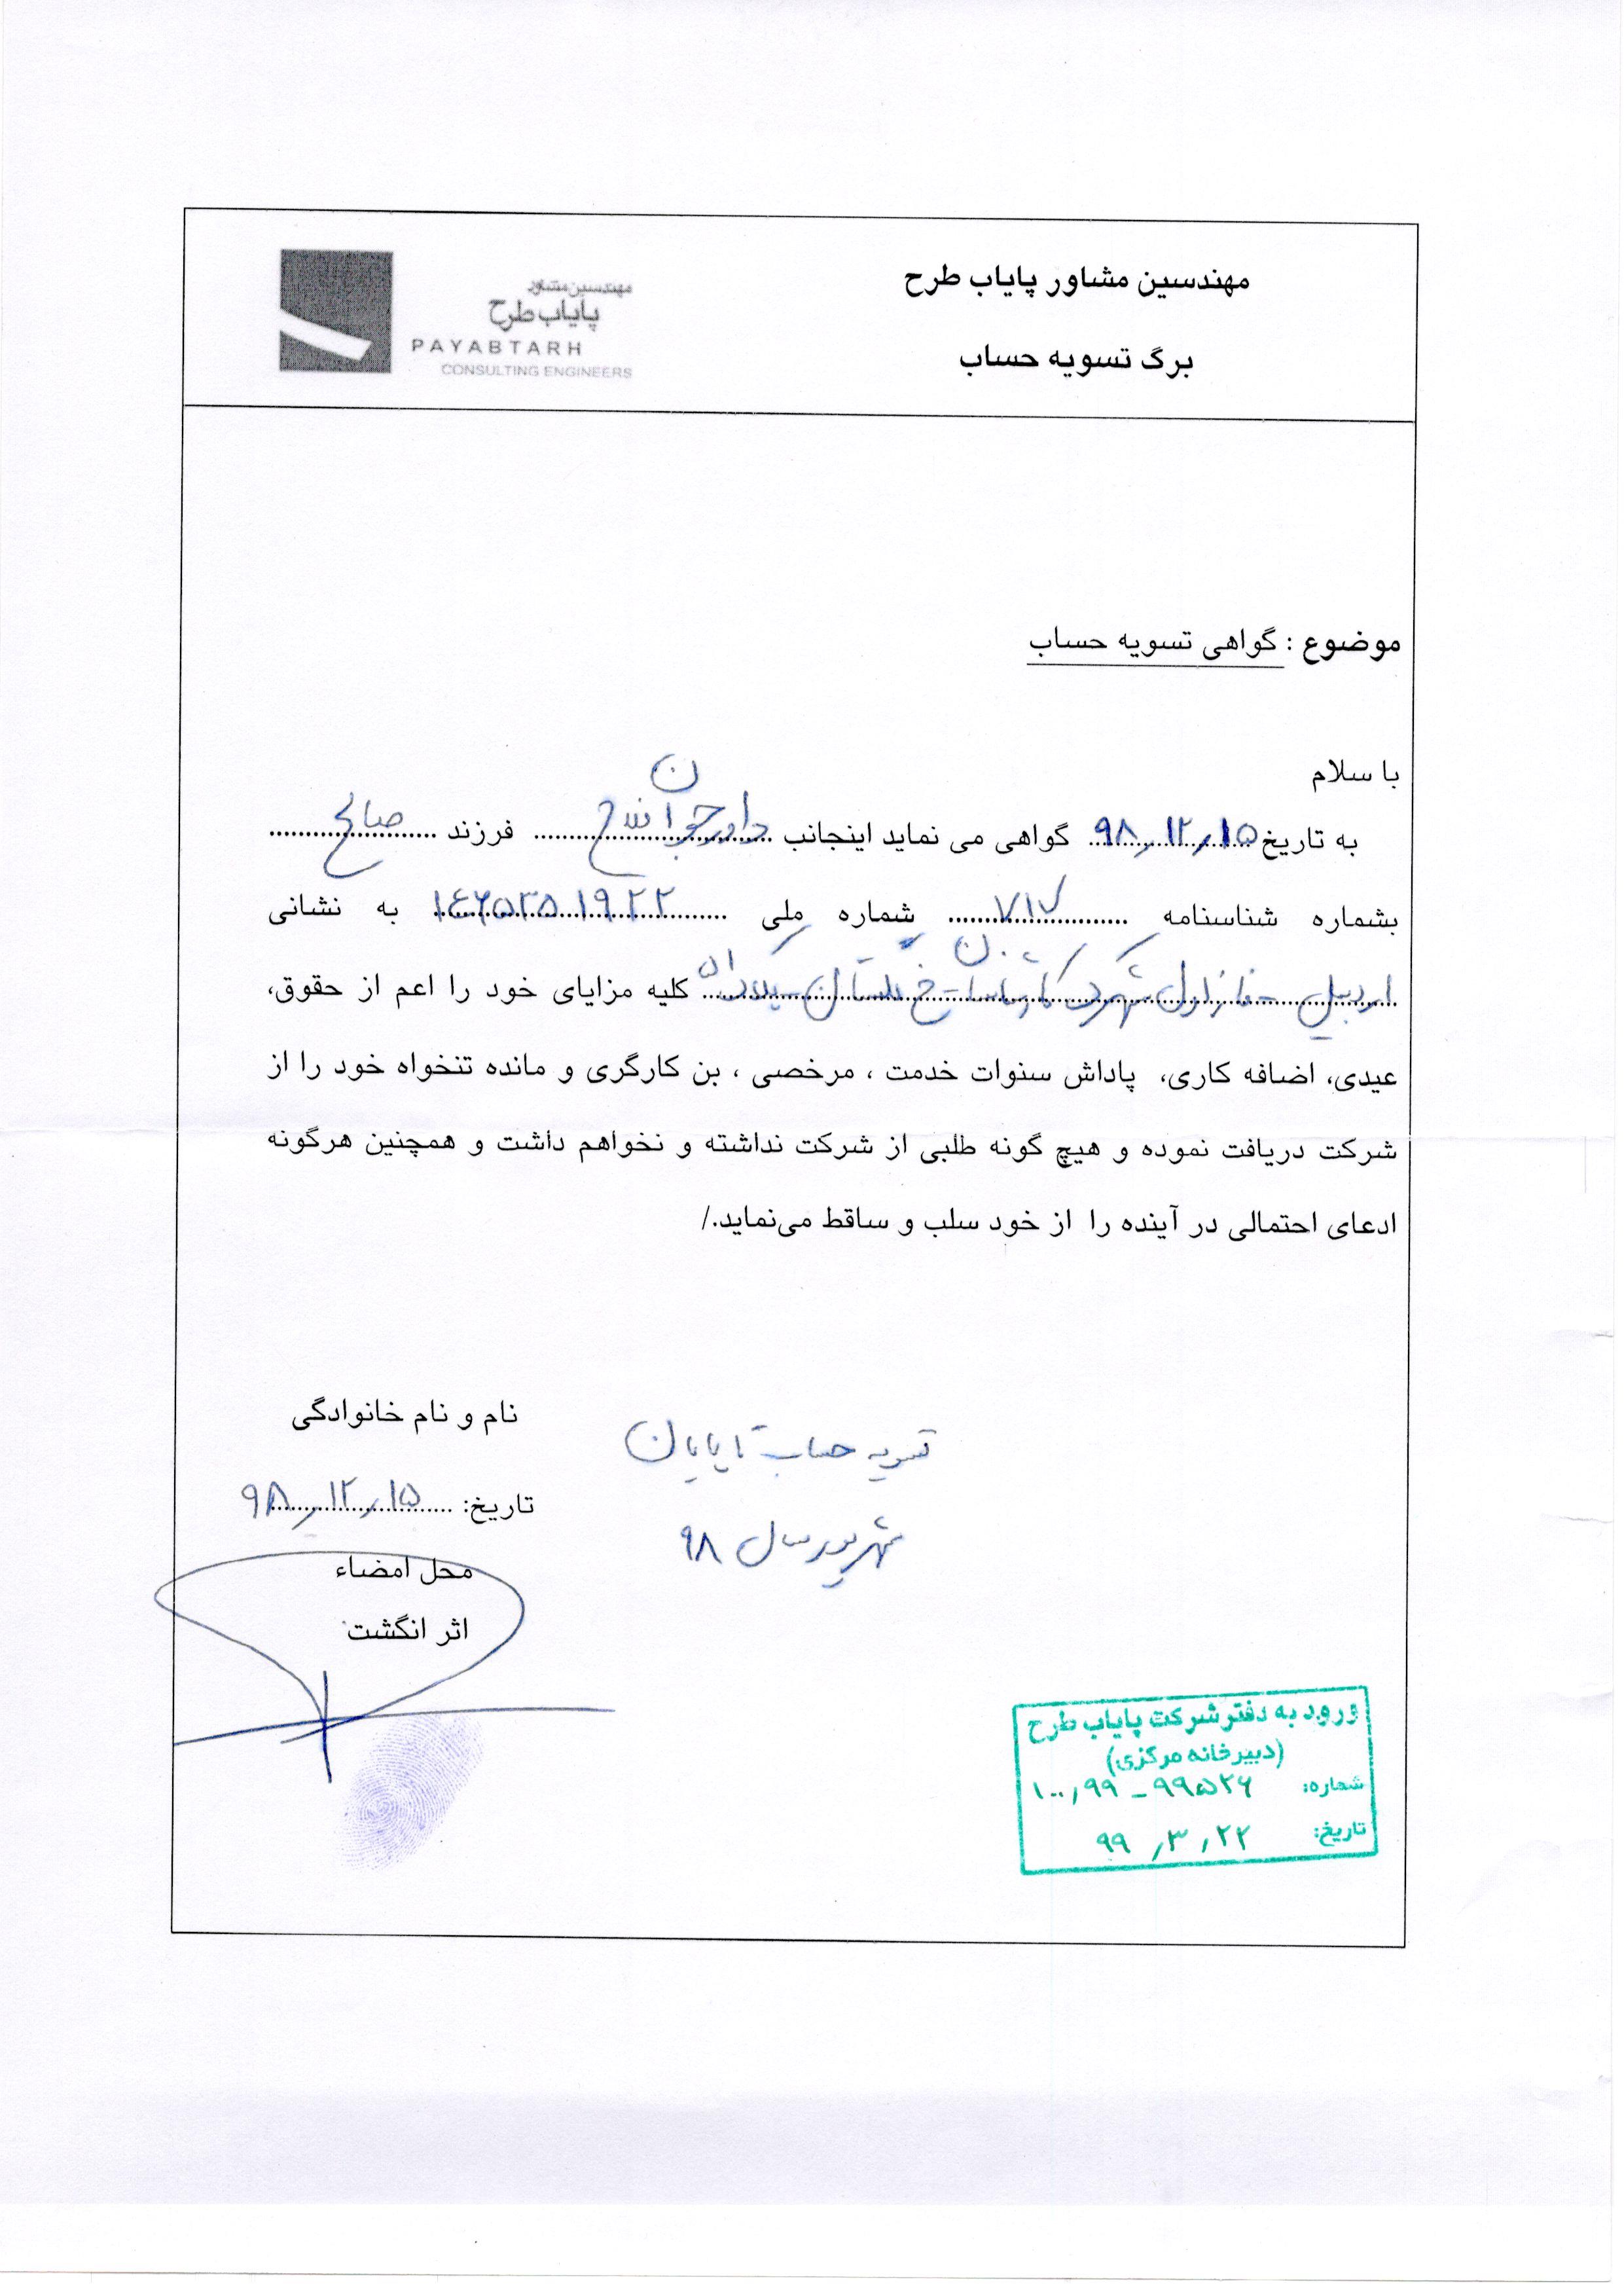 مهندسین مشاور پایاب طرح
برگ تسویه حساب
مهندسین مشاور
پایاب طرح
PAYABTARH
CONSULTING ENGINEERS
موضوع : گواهی تسویه حساب
با سلام
به تاریخ ۹۸/۱۲/۱۵ گواهی می نماید اینجانب فرزند صالح
بشماره شناسنامه ۷۱۷ شماره ملی ۱۴۶۵۳۵۱۹۲۲ به نشانی
اردبیل - فاز اول شهرک کارشناسان - خ گلستان - کلیه مزایای خود را اعم از حقوق،
عیدی، اضافه کاری، پاداش سنوات خدمت ، مرخصی ، بن کارگری و مانده تنخواه خود را از
شرکت دریافت نموده و هیچ گونه طلبی از شرکت نداشته و نخواهم داشت و همچنین هرگونه
ادعای احتمالی در آینده را از خود سلب و ساقط می‌نماید./
نام و نام خانوادگی
تسویه حساب تا پایان
تاریخ: ۹۸/۱۲/۱۵
شهریور سال ۹۸
محل امضاء
اثر انگشت
ورود به دفتر شرکت پایاب طرح
(دبیرخانه مرکزی)
شماره: ۱۰۰/۹۹ - ۹۹۵۲۶
تاریخ: ۹۹/۳/۲۲